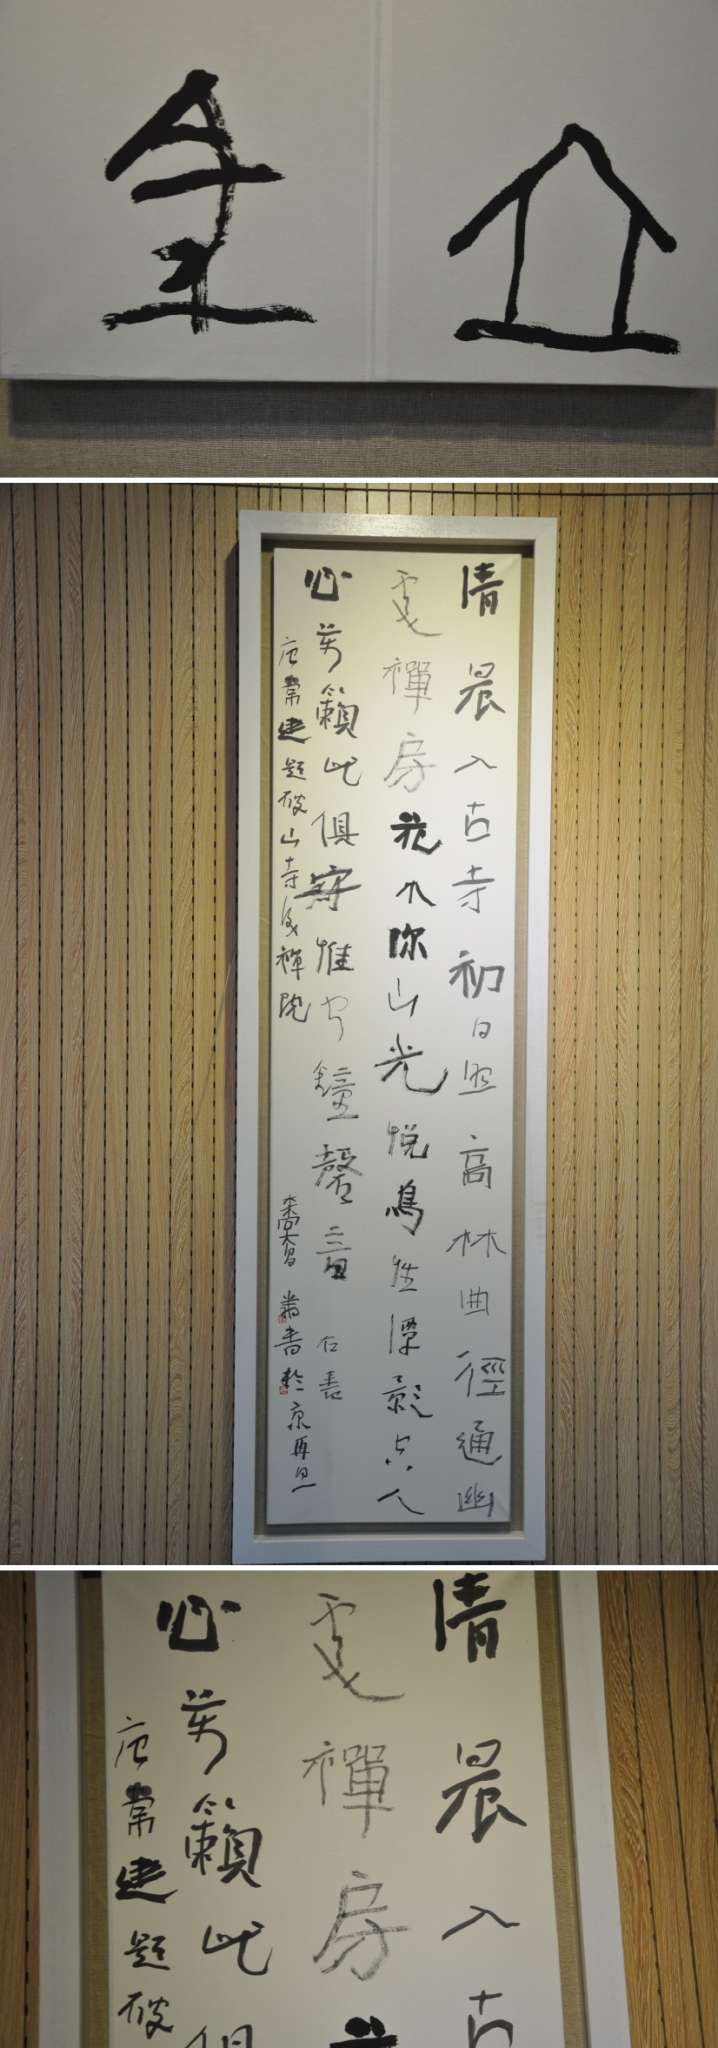 清晨入古寺初日照高林曲徑通幽
處禪房花木深山光悅鳥性潭影空人
心萬籟此俱寂惟聞鐘磬音
唐常建題破山寺後禪院
書於京
清晨入古
處禪房花
心萬籟此俱
唐常建題破